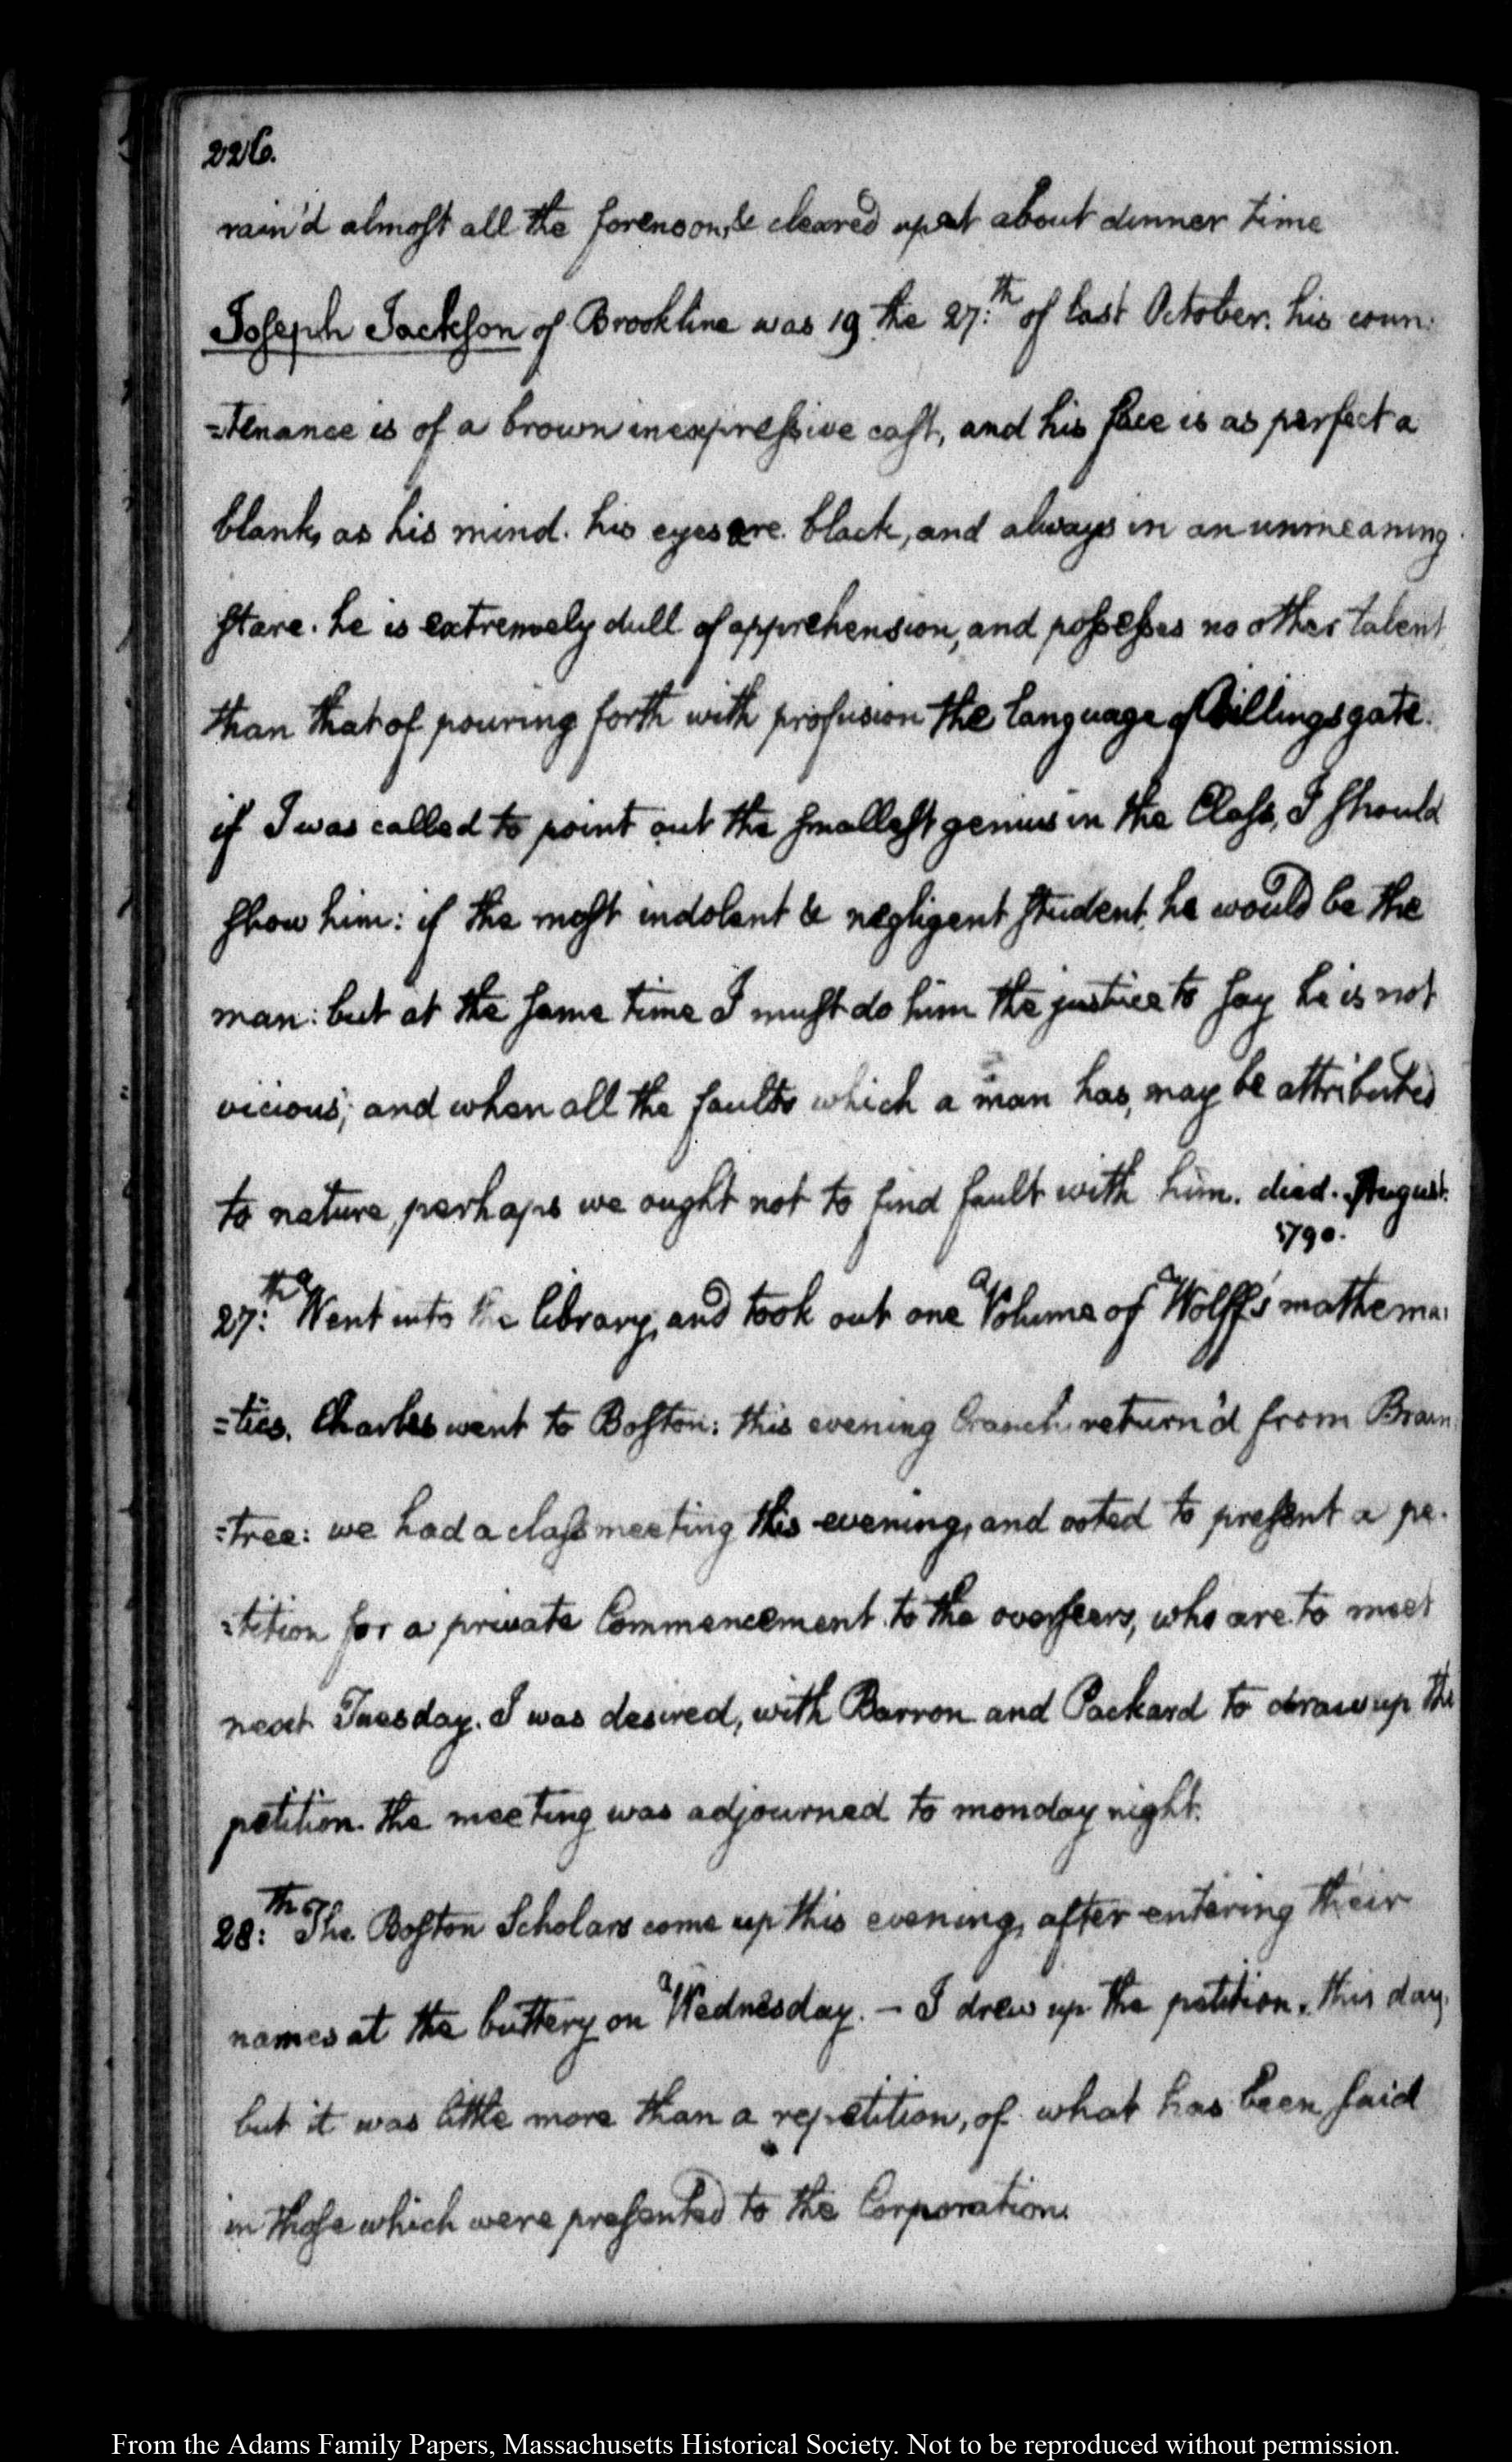 226.
rain'd almost all the forenoon, & cleared up at about dinner time
Joseph Jackson of Brookline was 19 the 27:th of last October. his coun:
=tenance is of a brown inexpressive cast, and his face is as perfect a
blank, as his mind. his eyes are black, and always in an unmeaning
stare. he is extremely dull of apprehension, and possesses no other talent,
than that of pouring forth with profusion the language of Billingsgate.
if I was called to point out the smallest genius in the Class, I should
show him: if the most indolent & negligent student, he would be the
man: but at the same time I must do him the justice to say he is not
vicious; and when all the faults which a man has, may be attributed
to nature, perhaps we ought not to find fault with him. died. August.
1790.
27:th Went into the library, and took out one Volume of Wolff's mathema:
=tics. Charles went to Boston: this evening Cranch return'd from Brain
=tree: we had a class meeting this evening, and voted to present a pe.
=tition for a private Commencement to the overseers, who are to meet
next Tuesday. I was desired, with Barron and Packard to draw up the
petition. the meeting was adjourned to monday night.
28:th The Boston Scholars come up this evening, after entering their
names at the buttery on Wednesday. — I drew up the petition, this day,
but it was little more than a repetition, of what has been said
in those which were presented to the Corporation.
From the Adams Family Papers, Massachusetts Historical Society. Not to be reproduced without permission.